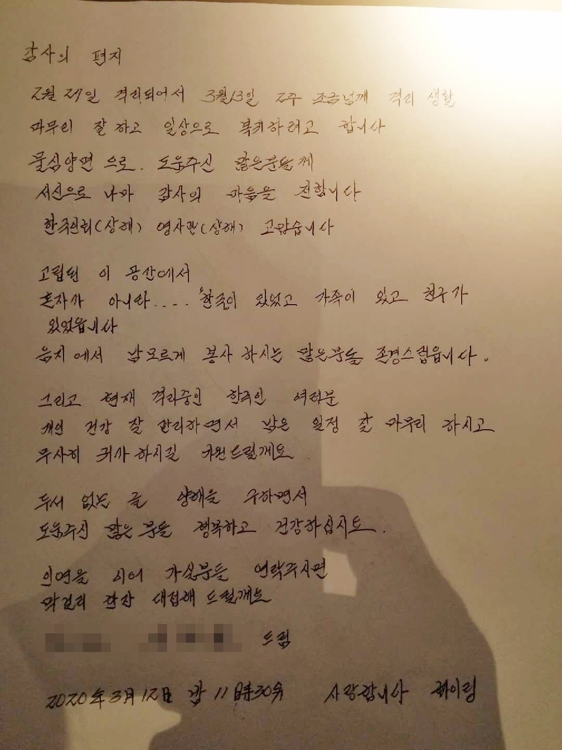 감사의 편지
2월 27일 격리되어서 3월13일 2주 조금넘께 격리 생활
마무리 잘 하고 일상으로 복귀하려고 합니다
물심양면 으로. 도움주신 많은분들께
서신으로 나마 감사의 마음을 전합니다
한국인회(상해) 영사관(상해) 고맙습니다
고립된 이 공간에서
혼자가 아니라.... 한국이 있었고 가족이 있고 친구가
있었읍니다
음지에서 남모르게 봉사 하시는 많은분들 존경스럽읍니다.
그리고 현재 격리중인 한국인 여러분
개인 건강 잘 관리하면서 남은 일정 잘 마무리 하시고
무사히 귀가 하시길 기원드릴께요
두서 없는 글 양해를 구하면서
도움주신 많은 분들 행복하고 건강하십시요.
인연을 이어 가실분들 연락주시면
막걸리 한잔 대접해 드릴께요
드림
2020年3月12日 밤 11時30分 사랑합니다 화이팅